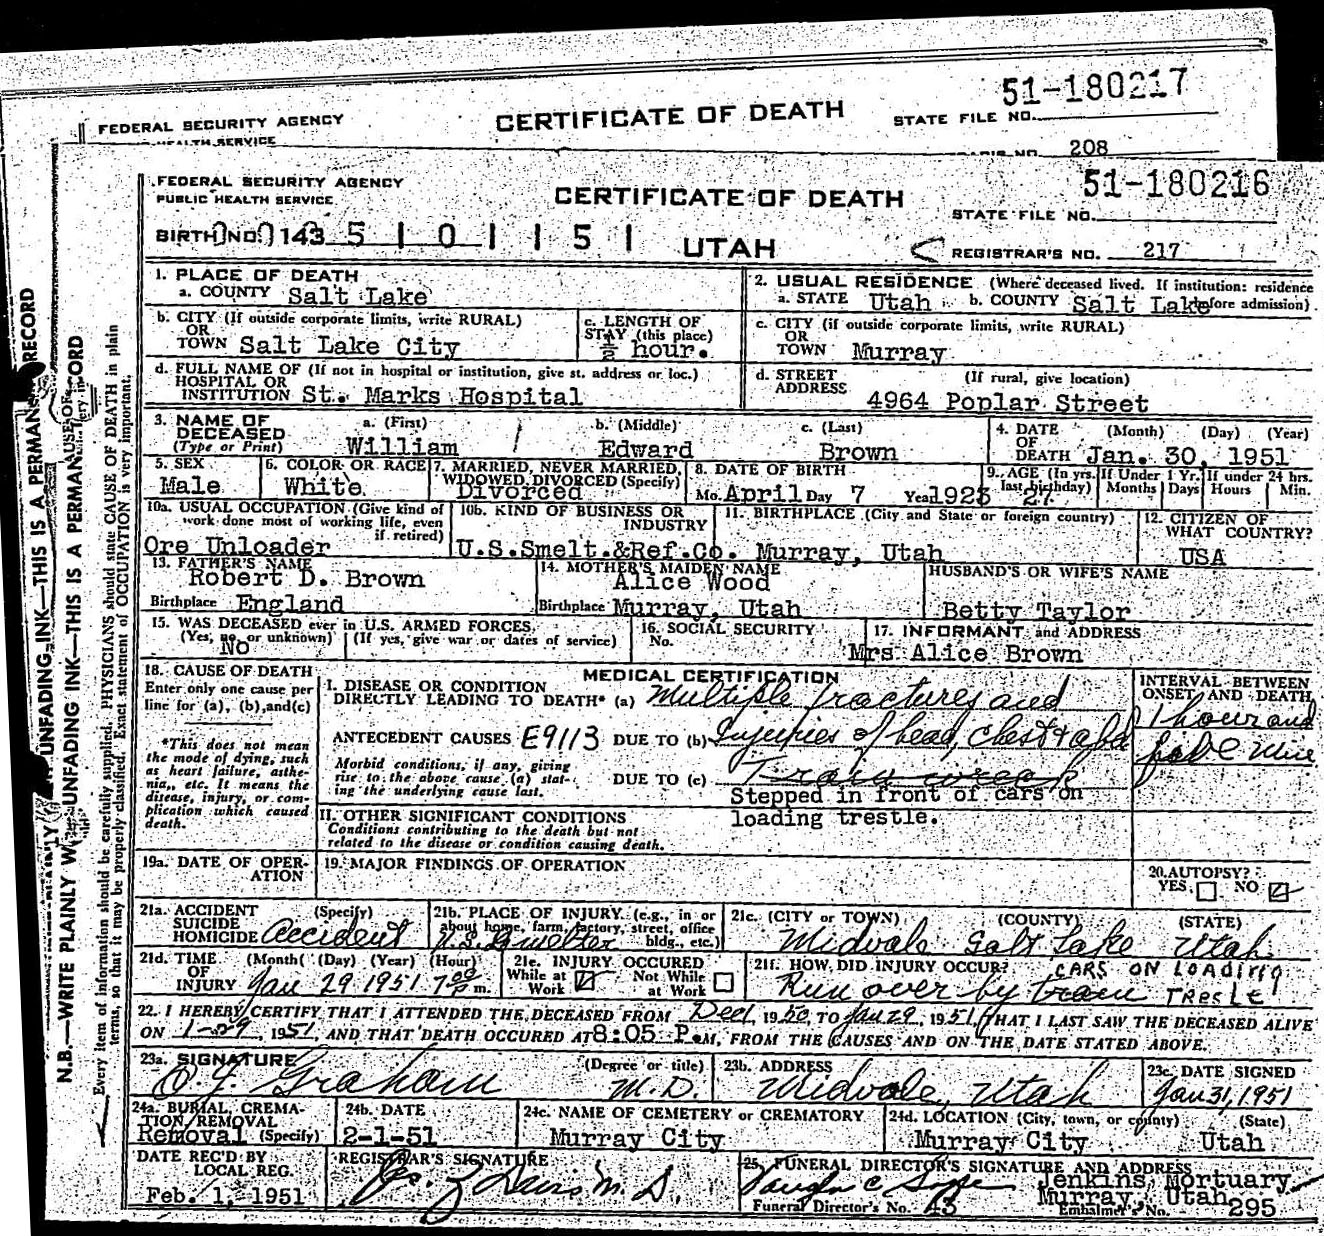 51-180217
FEDERAL SECURITY AGENCY CERTIFICATE OF DEATH STATE FILE NO.
HEALTH SERVICE 208
FEDERAL SECURITY AGENCY CERTIFICATE OF DEATH 51-180216
PUBLIC HEALTH SERVICE STATE FILE NO.
BIRTH NO. 143 5 1 0 1 1 5 1 UTAH REGISTRAR'S NO. 217
1. PLACE OF DEATH 2. USUAL RESIDENCE (Where deceased lived. If institution: residence
a. COUNTY Salt Lake a. STATE Utah b. COUNTY Salt Lake before admission)
b. CITY (If outside corporate limits, write RURAL) c. LENGTH OF c. CITY (if outside corporate limits, write RURAL)
OR STAY (this place) OR
TOWN Salt Lake City ½ hour. TOWN Murray
d. FULL NAME OF (If not in hospital or institution, give st. address or loc.) d. STREET (If rural, give location)
HOSPITAL OR ADDRESS
INSTITUTION St. Marks Hospital 4964 Poplar Street
3. NAME OF a. (First) b. (Middle) c. (Last) 4. DATE (Month) (Day) (Year)
DECEASED OF
(Type or Print) William Edward Brown DEATH Jan. 30, 1951
5. SEX 6. COLOR OR RACE 7. MARRIED, NEVER MARRIED, 8. DATE OF BIRTH 9. AGE (In yrs. If Under 1 Yr. If under 24 hrs.
WIDOWED, DIVORCED (Specify) last birthday) Months Days Hours Min.
Male White Divorced Mo. April Day 7 Year 1923 27
10a. USUAL OCCUPATION (Give kind of 10b. KIND OF BUSINESS OR 11. BIRTHPLACE (City and State or foreign country) 12. CITIZEN OF
work done most of working life, even INDUSTRY WHAT COUNTRY?
if retired)
Ore Unloader U.S.Smelt.&Ref.Co. Murray, Utah USA
13. FATHER'S NAME 14. MOTHER'S MAIDEN NAME HUSBAND'S OR WIFE'S NAME
Robert D. Brown Alice Wood
Birthplace England Birthplace Murray, Utah Betty Taylor
15. WAS DECEASED ever in U.S. ARMED FORCES, 16. SOCIAL SECURITY 17. INFORMANT and ADDRESS
(Yes, no, or unknown) (If yes, give war or dates of service) No.
No Mrs Alice Brown
18. CAUSE OF DEATH MEDICAL CERTIFICATION INTERVAL BETWEEN
Enter only one cause per I. DISEASE OR CONDITION ONSET AND DEATH
line for (a), (b), and (c) DIRECTLY LEADING TO DEATH* (a) Multiple fractures and 1 hour and
ANTECEDENT CAUSES E9113 DUE TO (b) Injuries of head, chest & abd
*This does not mean Morbid conditions, if any, giving
the mode of dying, such rise to the above cause (a) stat- DUE TO (c) Train wreck
as heart failure, asthe- ing the underlying cause last. Stepped in front of cars on
nia, etc. It means the II. OTHER SIGNIFICANT CONDITIONS loading trestle.
disease, injury, or com- Conditions contributing to the death but not
plication which caused related to the disease or condition causing death.
death.
19a. DATE OF OPER- 19. MAJOR FINDINGS OF OPERATION 20. AUTOPSY?
ATION YES NO
21a. ACCIDENT (Specify) 21b. PLACE OF INJURY (e.g., in or 21c. (CITY or TOWN) (COUNTY) (STATE)
SUICIDE about home, farm, factory, street, office
HOMICIDE Accident U.S. Smelter bldg., etc.) Midvale Salt Lake Utah
21d. TIME (Month) (Day) (Year) (Hour) 21e. INJURY OCCURED 21f. HOW DID INJURY OCCUR? CARS ON LOADING
OF While at Not While
INJURY Jan 29 1951 7:00 P.m. Work at Work Run over by train TRESLE
22. I HEREBY CERTIFY THAT I ATTENDED THE DECEASED FROM Dec 1, 1950, TO Jan 29, 1951, THAT I LAST SAW THE DECEASED ALIVE
ON 1-29, 1951, AND THAT DEATH OCCURED AT 8:05 P.M., FROM THE CAUSES AND ON THE DATE STATED ABOVE.
23a. SIGNATURE (Degree or title) 23b. ADDRESS 23c. DATE SIGNED
O. J. Graham M.D. Midvale, Utah Jan 31, 1951
24a. BURIAL, CREMA- 24b. DATE 24c. NAME OF CEMETERY or CREMATORY 24d. LOCATION (City, town, or county) (State)
TION, REMOVAL
Removal (Specify) 2-1-51 Murray City Murray City Utah
DATE REC'D BY REGISTRAR'S SIGNATURE 25. FUNERAL DIRECTOR'S SIGNATURE AND ADDRESS
LOCAL REG. M.D. Jenkins Mortuary
Feb. 1, 1951 Murray, Utah
Funeral Director's No. 43 Embalmer's No. 295
N.B.—WRITE PLAINLY W UNFADING INK—THIS IS A PERMAN RECORD
Every item of information should be carefully supplied. PHYSICIANS should state CAUSE OF DEATH in plain
terms, so that it may be properly classified. Exact statement of OCCUPATION is very important.